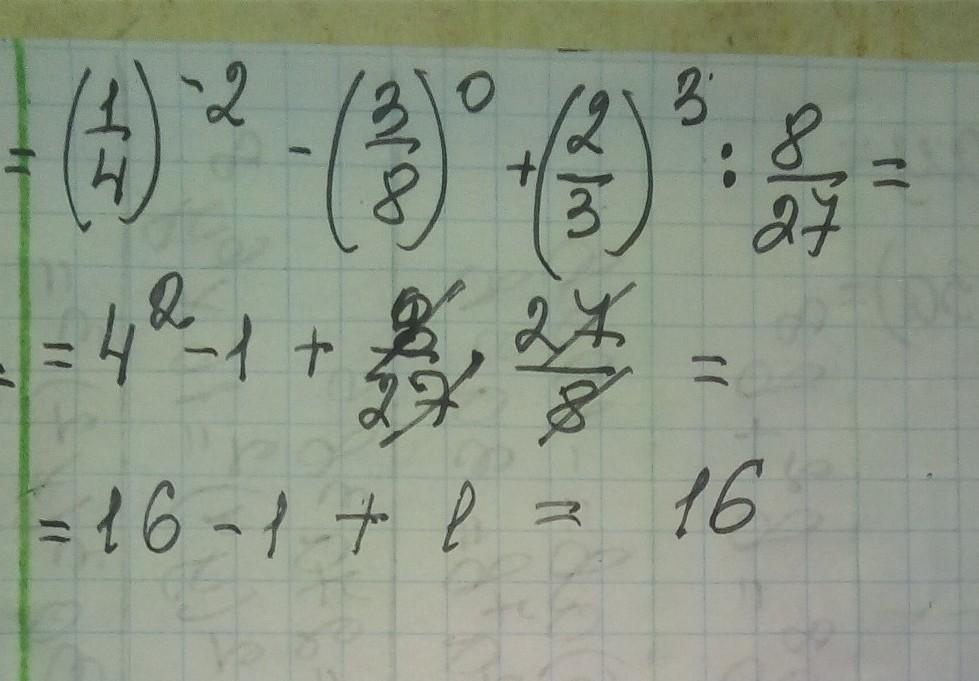 = (1/4)^-2 - (3/8)^0 + (2/3)^3 : 8/27 =
= 4^2 - 1 + 8/27 · 27/8 =
= 16 - 1 + 1 = 16